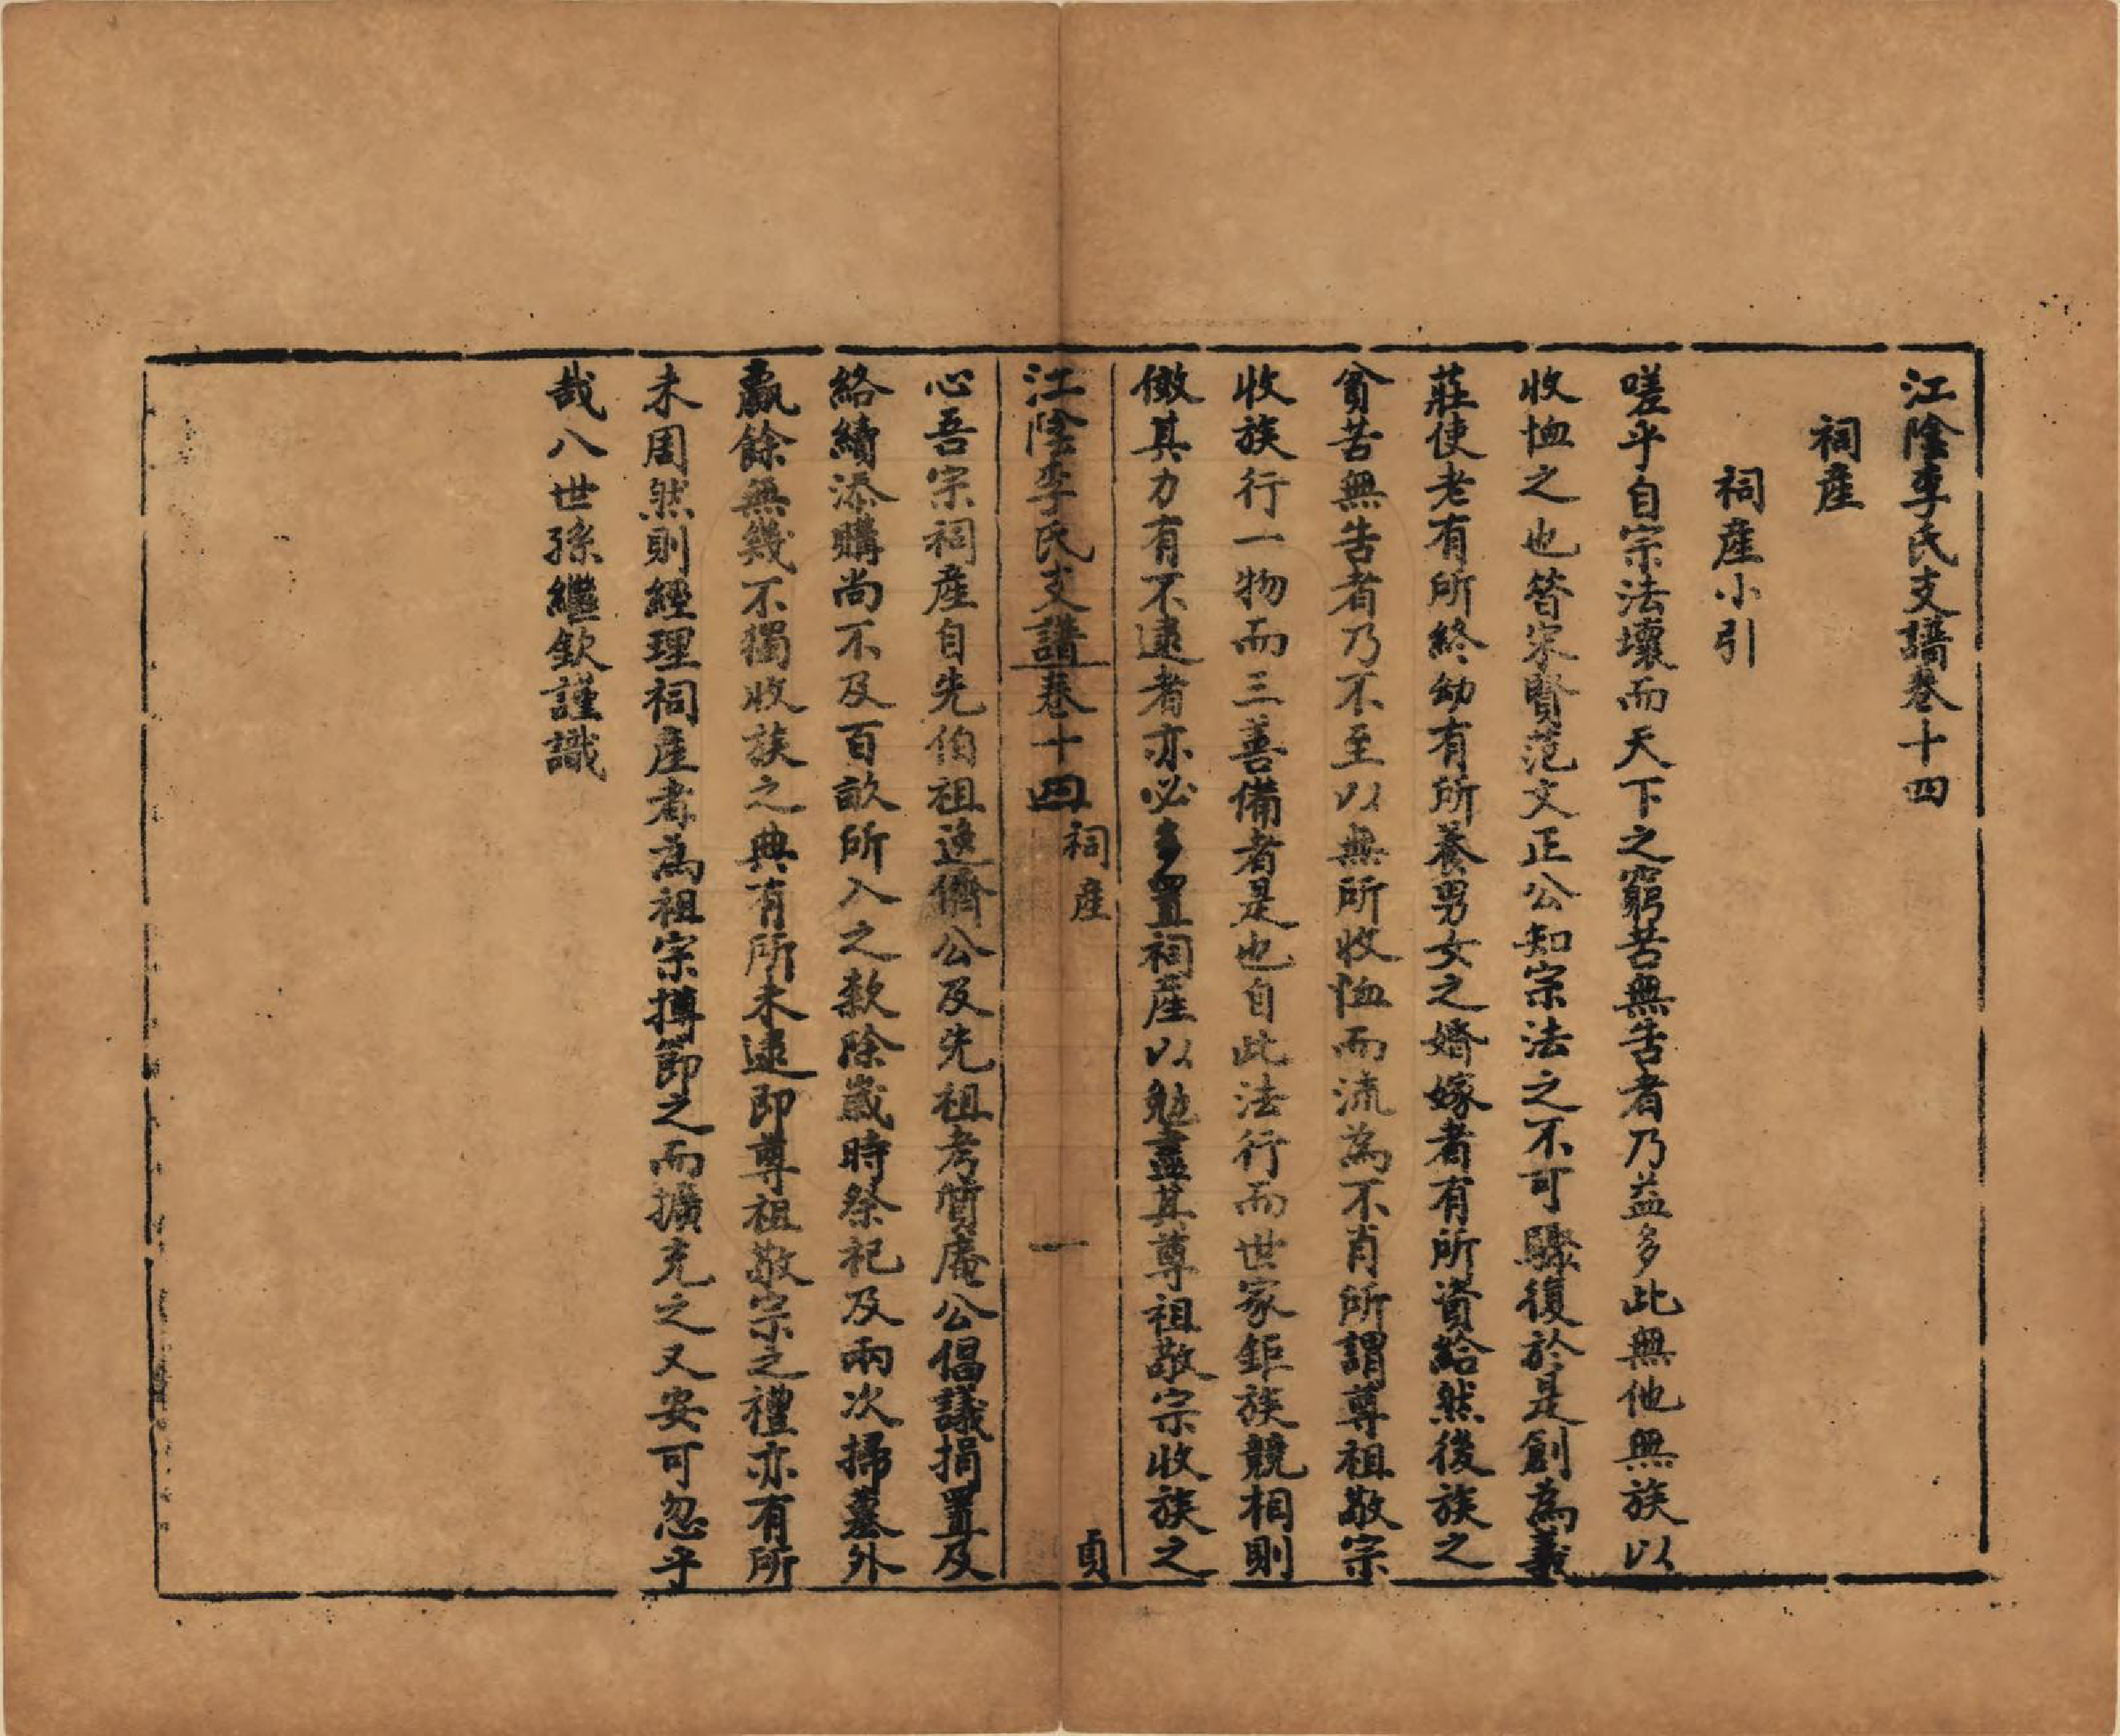 江陰李氏支譜卷十四
祠產
祠產小引
嗟乎自宗法壞而天下之窮苦無告者乃益多此無他無族以
收恤之也昝宋賢范文正公知宗法之不可驟復於是創為義
莊使老有所終幼有所養男女之婚嫁者有所資給然後族之
貧苦無告者乃不至以無所收恤而流為不肖所謂尊祖敬宗
收族行一物而三善備者是也自此法行而世家鉅族競相則
倣其力有不逮者亦必多置祠產以勉盡其尊祖敬宗收族之
江陰李氏支譜卷十四 祠產 一 貞
心吾宗祠產自先伯祖逸儕公及先祖考質庵公倡議捐置及
絡續添購尚不及百畝所入之款除歲時祭祀及兩次掃墓外
羸餘無幾不獨收族之典有所未逮即尊祖敬宗之禮亦有所
未周然則經理祠產者為祖宗撙節之而擴充之又安可忽乎
哉八世孫繼欽謹識